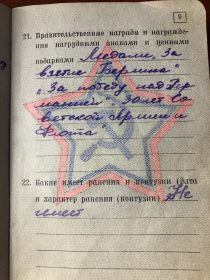 9
21. Правительственные награды и награжде-
ния нагрудными знаками и ценными
подарками Медали, За
взятие Берлина"
"За победу над Гер
манией" 30 лет Со
ветской Армии и
Флота
22. Какие имеет ранения и контузии (дата
и характер ранения (контузии) Не
имеет